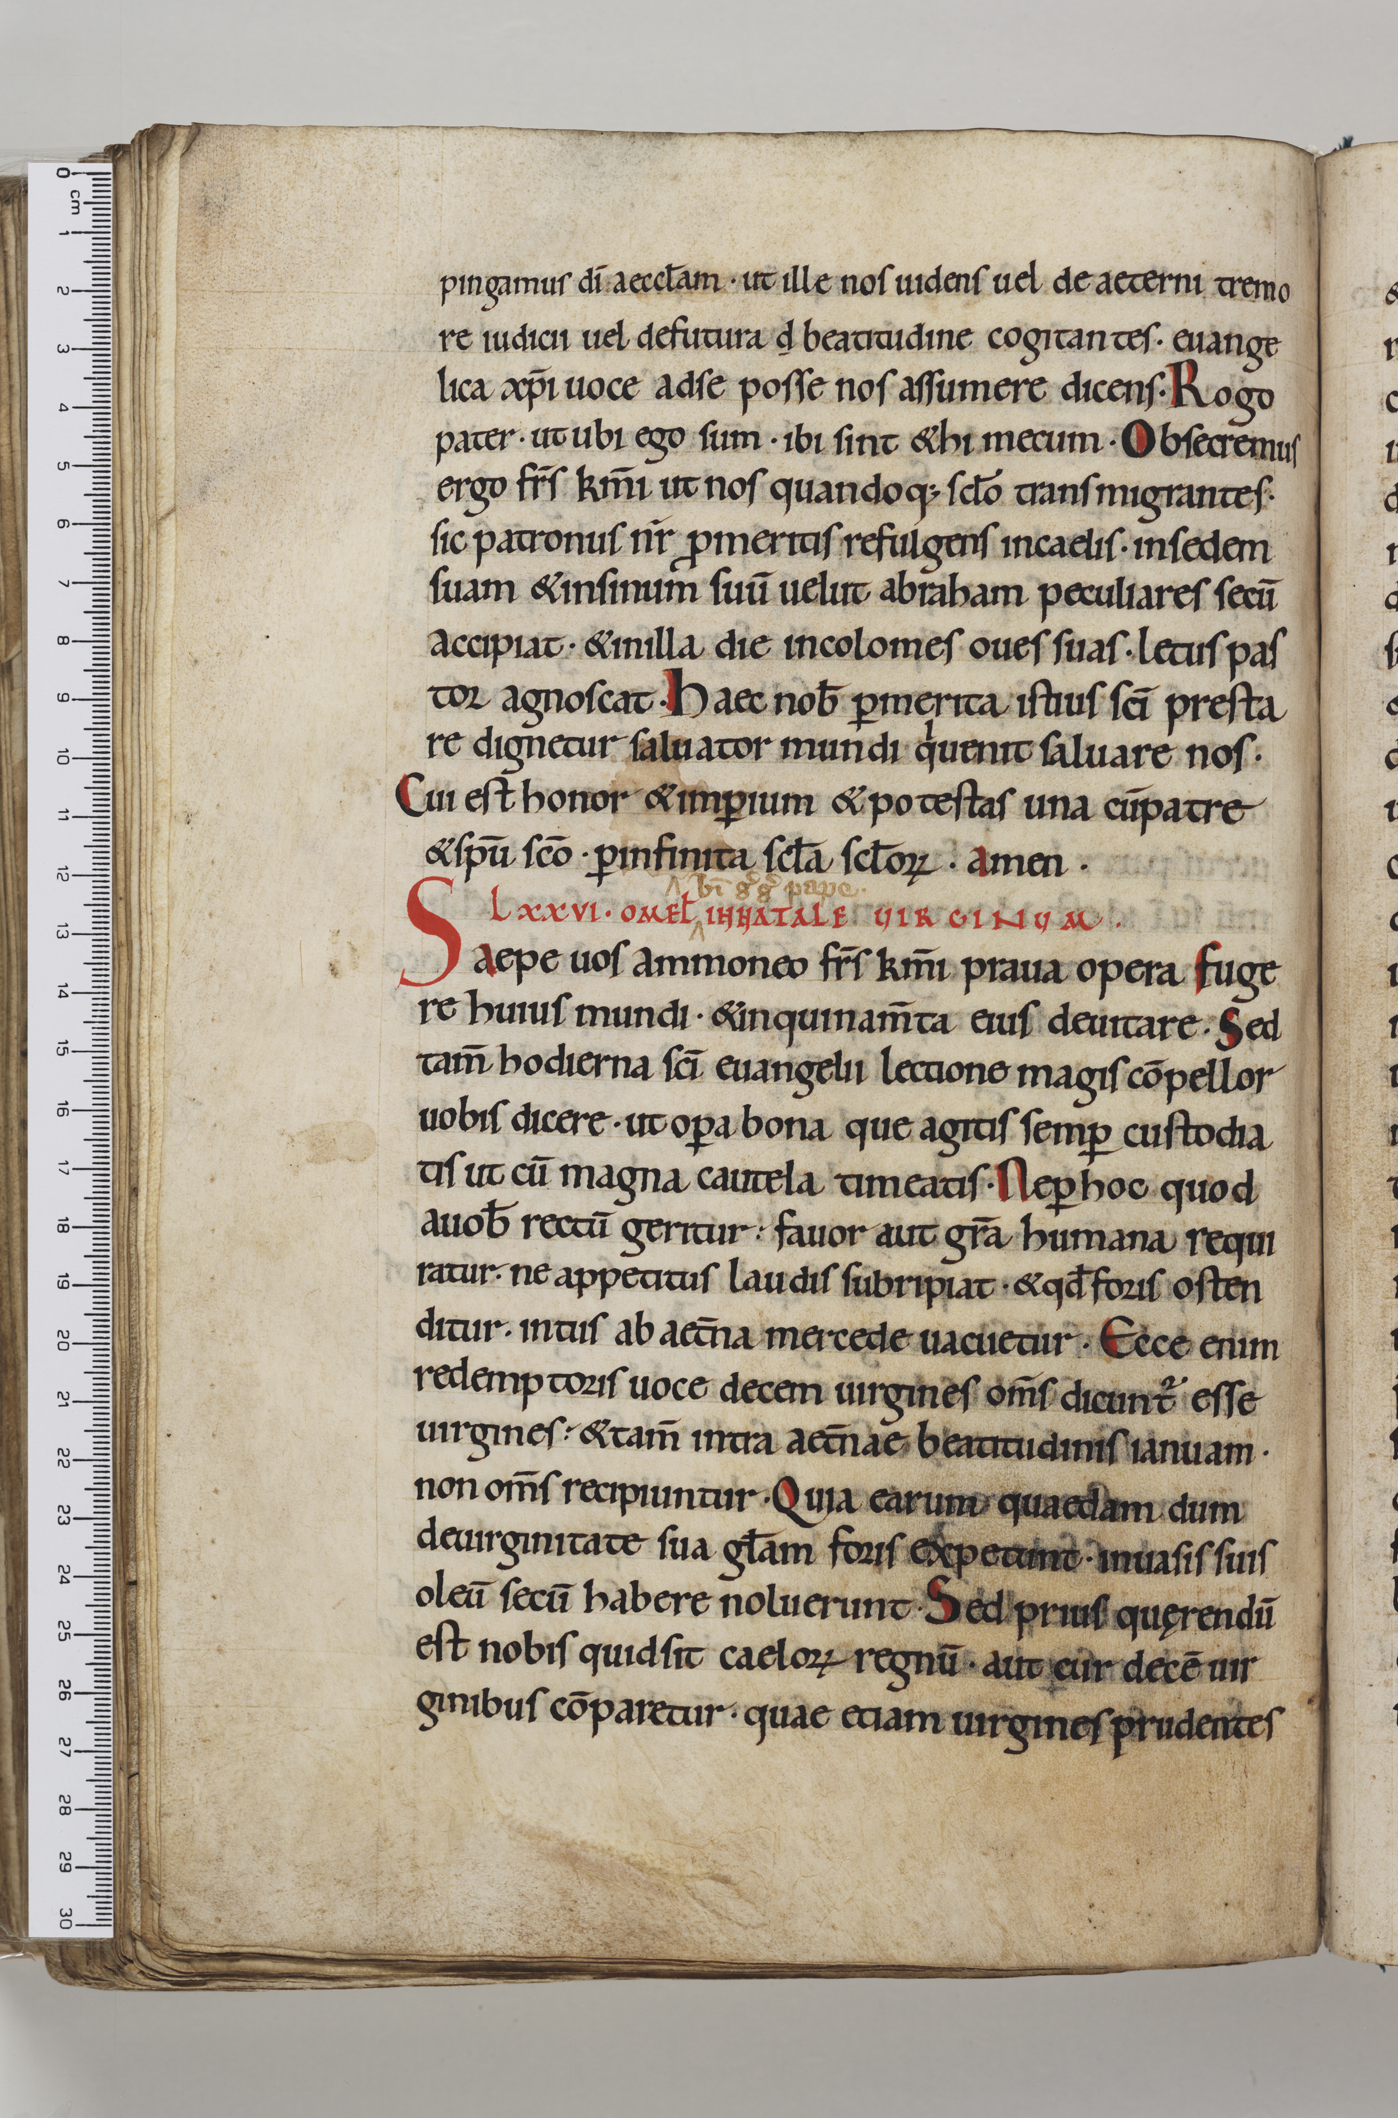 pingamus dī aeccƚam · ut ille nos uidens uel de aeterni tremo
re iudicii uel defutura q̣ beatitudine cogitantes · euange
lica xp̄i uoce adse posse nos assumere dicens · Rogo
pater · ut ubi ego sum · ibi sint & hi mecum · Obsecremus
ergo fr̄s km̄i ut nos quandoq; scƚo transmigrantes ·
sic patronus nr̄ ꝓmeritis refulgens incaelis · insedem
suam & insinum suū uelut abraham peculiares secū
accipiat · & inilla die incolomes oues suas · letus pas
tor agnoscat · Haec nob̄ ꝑmerita istius scī presta
re dignetur saluator mundi qͥuenit saluare nos ·
Cui est honor & imꝑium & potestas una cūpatre
& spū scō · ꝑinfinita scƚa scƚoꝝ · amen ·
bī g̊g̊ pape ·
LXXVI · OMEƚ INNATALE VIRGINVM ·
Saepe uos ammoneo fr̄s km̄i praua opera fuge
re huius mundi · & inquinam̄ta eius deuitare · Sed
tam̄ hodierna scī euangelii lectione magis cōpellor
uobis dicere · ut oꝑa bona que agitis semꝑ custodia
tis ut cū magna cautela timeatis · Neꝑ hoc quod
auob̄ rectū geritur : fauor aut gr̄a humana requi
ratur · ne appetitus laudis subripiat · & qđ foris osten
ditur · intus ab aet̄na mercede uacuetur · Ecce enim
redemptoris uoce decem uirgines om̄s dicunt᷑ esse
uirgines : & tam̄ intra aet̄nae beatitudinis ianuam ·
non om̄s recipiuntur · Quia earum quaedam dum
deuirginitate sua gƚam foris expetunt · inuasis suis
oleū secū habere noluerunt · Sed prius quęrendū
est nobis quid sit caeloꝝ regnū · aut cur decē uir
ginibus cōparetur · quae etiam uirgines prudentes
0
cm
1
2
3
4
5
6
7
8
9
10
11
12
13
14
15
16
17
18
19
20
21
22
23
24
25
26
27
28
29
30